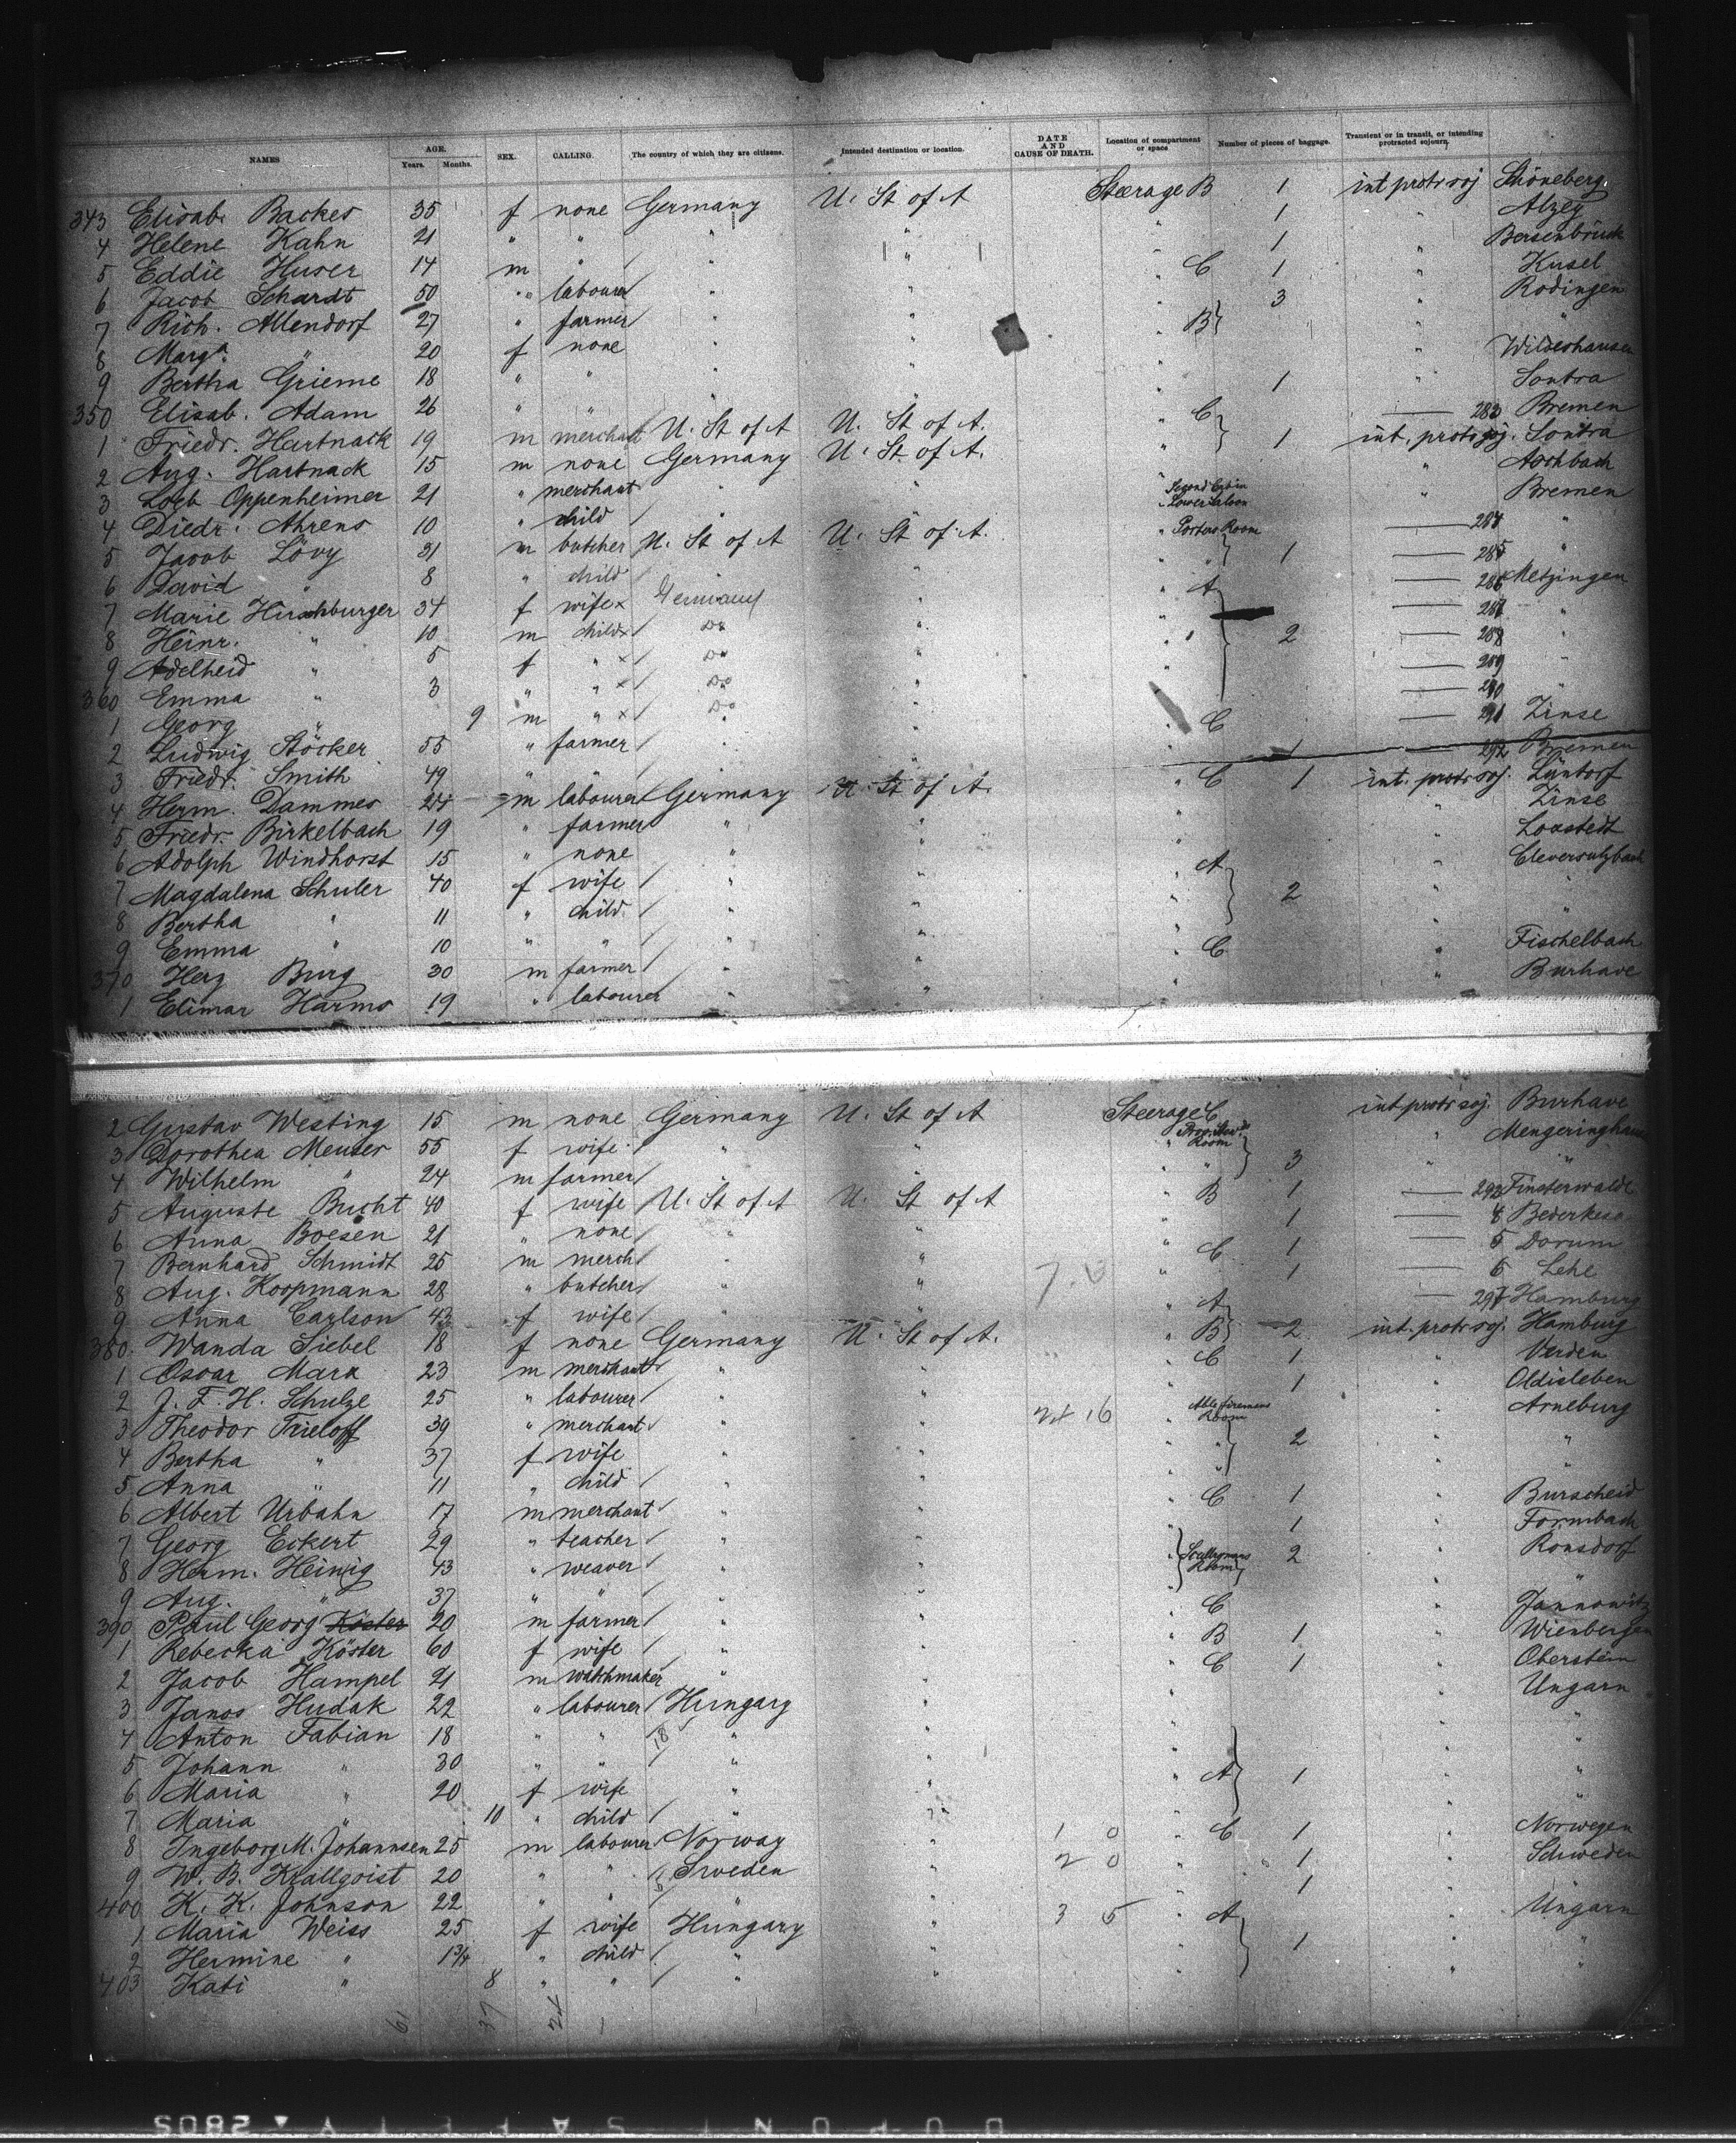 NAMES AGE. Years. Months. SEX. CALLING. The country of which they are citizens. Intended destination or location. DATE AND CAUSE OF DEATH. Location of compartment or space Number of pieces of baggage. Transient or in transit, or intending protracted sojourn.
343 Elisab. Backes 35 f none Germany U. St of A Steerage B 1 int protr soj Schöneberg
4 Helene Kahn 21 " " " " " 1 " Alzey
5 Eddie Huser 14 m " " " " 1 " Bersenbrück
6 Jacob Schardt 50 " labourer " " " C 1 " Kusel
7 Rich. Allendorf 27 " farmer " " " B 3 " Rodingen
8 Marga " 20 f none " " " " "
9 Bertha Grieme 18 " " " " " " Wildeshausen
350 Elisab. Adam 26 " " " " " 1 " Sontra
1 Friedr. Hartnack 19 m merchant U. St of A U. St of A. " C 282 Bremen
2 Aug. Hartnack 15 m none Germany U. St of A. " 1 int. protr soj. Sontra
3 Loeb Oppenheimer 21 " merchant " " " Aschbach
4 Diedr. Ahrens 10 " child " " Second Cabin Lower Saloon " Bremen
5 Jacob Lövy 31 m butcher U. St of A U. St of A. " Porters Room 284 "
6 David " 8 " child " " 1 285 "
7 Marie Hirschburger 34 f wife x Germany " " A 286 Metzingen
8 Heinr. " 10 m child x Do " " 287 "
9 Adelheid " 5 f " x Do " " 2 288 "
360 Emma " 3 " " x Do " " 289 "
1 Georg " 9 m " x Do " " 290 "
2 Ludwig Stöcker 55 " farmer " " " C 291 Zinse
3 Friedr. Smith 49 " " " " 1 292 Bremen
4 Herm. Dammes 24 m labourer Germany U. St of A. " C 1 int. protr soj. Lüntorf
5 Friedr. Birkelbach 19 " farmer " " " " Zinse
6 Adolph Windhorst 15 " none " " " " Loxstedt
7 Magdalena Schuler 40 f wife " " " A " Cleversulzbach
8 Bertha " 11 " child " " " 2 " "
9 Emma " 10 " " " " " " "
370 Herg Burg 30 m farmer " " " C " Fischelbach
1 Elimar Harms 19 " labourer " " " " Burhave
2 Gustav Westing 15 m none Germany U. St of A Steerage C int protr soj. Burhave
3 Dorothea Meuser 55 f wife " " " Room " Mengeringhausen
4 Wilhelm " 24 m farmer " " " 3 " "
5 Auguste Bucht 40 f wife U. St of A U. St of A " B 1 293 Finsterwalde
6 Anna Boesen 21 " none " " " 1 4 Bederkesa
7 Bernhard Schmidt 25 m merch " " " C 1 5 Dorum
8 Aug. Koopmann 28 " butcher " " " 1 6 Lehe
9 Anna Carlson 43 f wife " " " A 297 Hamburg
380. Wanda Siebel 18 f none Germany U. St of A. " B 2 int. protr soj. Hamburg
1 Oscar Marx 23 m merchant " " " C 1 " Verden
2 J. F. H. Schulze 25 " labourer " " " 1 " Oldisleben
3 Theodor Trieloff 39 " merchant " " " Able firemens Room " Arneburg
4 Bertha " 37 f wife " " " 2 " "
5 Anna " 11 " child " " " " "
6 Albert Urbahn 17 m merchant " " " C 1 " Burscheid
7 Georg Eckert 29 " teacher " " " 1 " Formbach
8 Herm. Heinig 43 " weaver " " " Room 2 " Ronsdorf
9 Aug. " 37 " " " " " " "
390 Paul Georg Köster 20 m farmer " " " C " Jannowitz
1 Rebecka Köster 60 f wife " " " B 1 " Wienbergen
2 Jacob Hampel 21 m watchmaker " " " C 1 " Oberstein
3 Janos Hudak 22 " labourer Hungary " " " Ungarn
4 Anton Fabian 18 " " " " " " "
5 Johann " 30 " " " " " " "
6 Maria " 20 f wife " " " A 1 " "
7 Maria " 10 " child " " " " "
8 Ingeborg M. Johannsen 25 m labourer Norway " 1 0 " C 1 " Norwegen
9 W. B. Krallqoist 20 " " Sweden " 2 0 " 1 " Schweden
400 K. K. Johnson 22 " " " " " 1 "
1 Maria Weiss 25 f wife Hungary " 3 5 " A " Ungarn
2 Hermine " 1 3/4 " child " " " 1 " "
403 Kati " 8 " " " " " " "
61 37 24
DUPONT SAFETY 2805